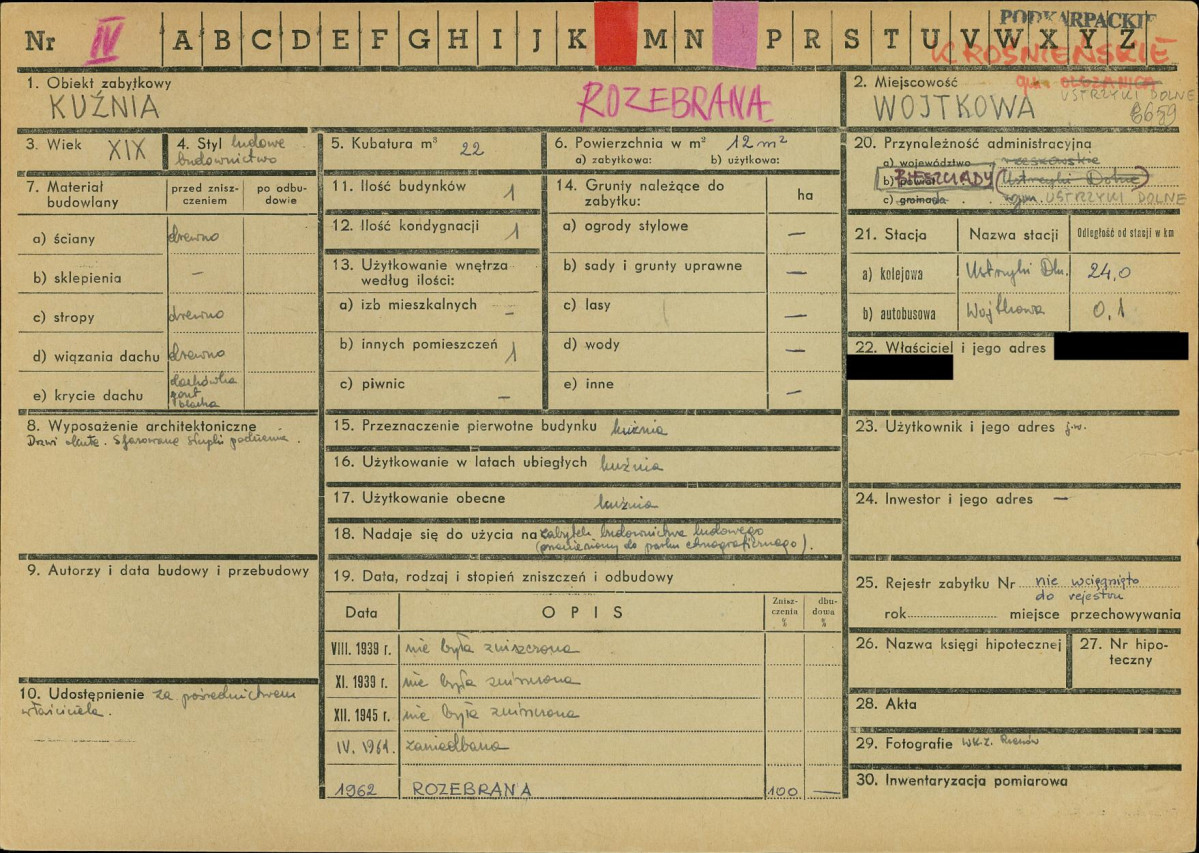 Nr IV A B C D E F G H I J K M N P R S T U V W X Y Z
PODKARPACKIE
KROŚNIEŃSKIE
gm. OLSZANICA
USTRZYKI DOLNE
6659
1. Obiekt zabytkowy
KUŹNIA
ROZEBRANA
2. Miejscowość
WOJTKOWA
3. Wiek XIX
4. Styl ludowe
budownictwo
5. Kubatura m³ 22
6. Powierzchnia w m² 12 m²
a) zabytkowa: b) użytkowa:
7. Materiał
budowlany
przed znisz-
czeniem
po odbu-
dowie
a) ściany drewno
b) sklepienia –
c) stropy drewno
d) wiązania dachu drewno
e) krycie dachu dachówka
gont
blacha
8. Wyposażenie architektoniczne
Drzwi okute. Sfazowane słupki podcienia.
9. Autorzy i data budowy i przebudowy
10. Udostępnienie za pośrednictwem
właściciela.
11. Ilość budynków 1
12. Ilość kondygnacji 1
13. Użytkowanie wnętrza
według ilości:
a) izb mieszkalnych –
b) innych pomieszczeń 1
c) piwnic –
14. Grunty należące do
zabytku:
ha
a) ogrody stylowe —
b) sady i grunty uprawne —
c) lasy —
d) wody —
e) inne —
15. Przeznaczenie pierwotne budynku kuźnia
16. Użytkowanie w latach ubiegłych kuźnia
17. Użytkowanie obecne kuźnia
18. Nadaje się do użycia na zabytek budownictwa ludowego
(przeniesiony do parku etnograficznego).
19. Data, rodzaj i stopień zniszczeń i odbudowy
Data OPIS Znisz-
czenia
%
dbu-
dowa
%
VIII. 1939 r. nie była zniszczona
XI. 1939 r. nie była zniszczona
XII. 1945 r. nie była zniszczona
IV. 1961. zaniedbana
1962 ROZEBRANA 100 —
20. Przynależność administracyjna
a) województwo rzeszowskie
b) powiat BIESZCZADY (Ustrzyki Dolne)
c) gromada gm. USTRZYKI DOLNE
21. Stacja Nazwa stacji Odległość od stacji w km
a) kolejowa Ustrzyki Dln. 24,0
b) autobusowa Wojtkowa 0,1
22. Właściciel i jego adres
23. Użytkownik i jego adres j.w.
24. Inwestor i jego adres —
25. Rejestr zabytku Nr nie wciągnięto
do rejestru
rok miejsce przechowywania
26. Nazwa księgi hipotecznej
27. Nr hipo-
teczny
28. Akta
29. Fotografie WKZ. Rzeszów
30. Inwentaryzacja pomiarowa